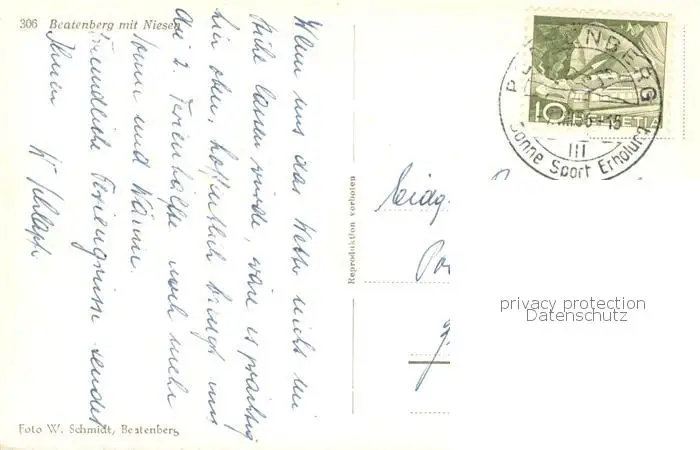 306 Beatenberg mit Niesen
Wenn uns das Wetter nicht im
Stiche lassen würde, wäre es prächtig
hier oben, hoffentlich bringt uns
die 2. Ferienhälfte noch mehr
Sonne und Wärme.
Freundliche Feriengrüsse sendet
Ihnen
Foto W. Schmidt, Beatenberg
Reproduktion verboten
BEATENBERG
10 HELVETIA
III
Sonne Sport Erholung
Eidg.
privacy protection
Datenschutz